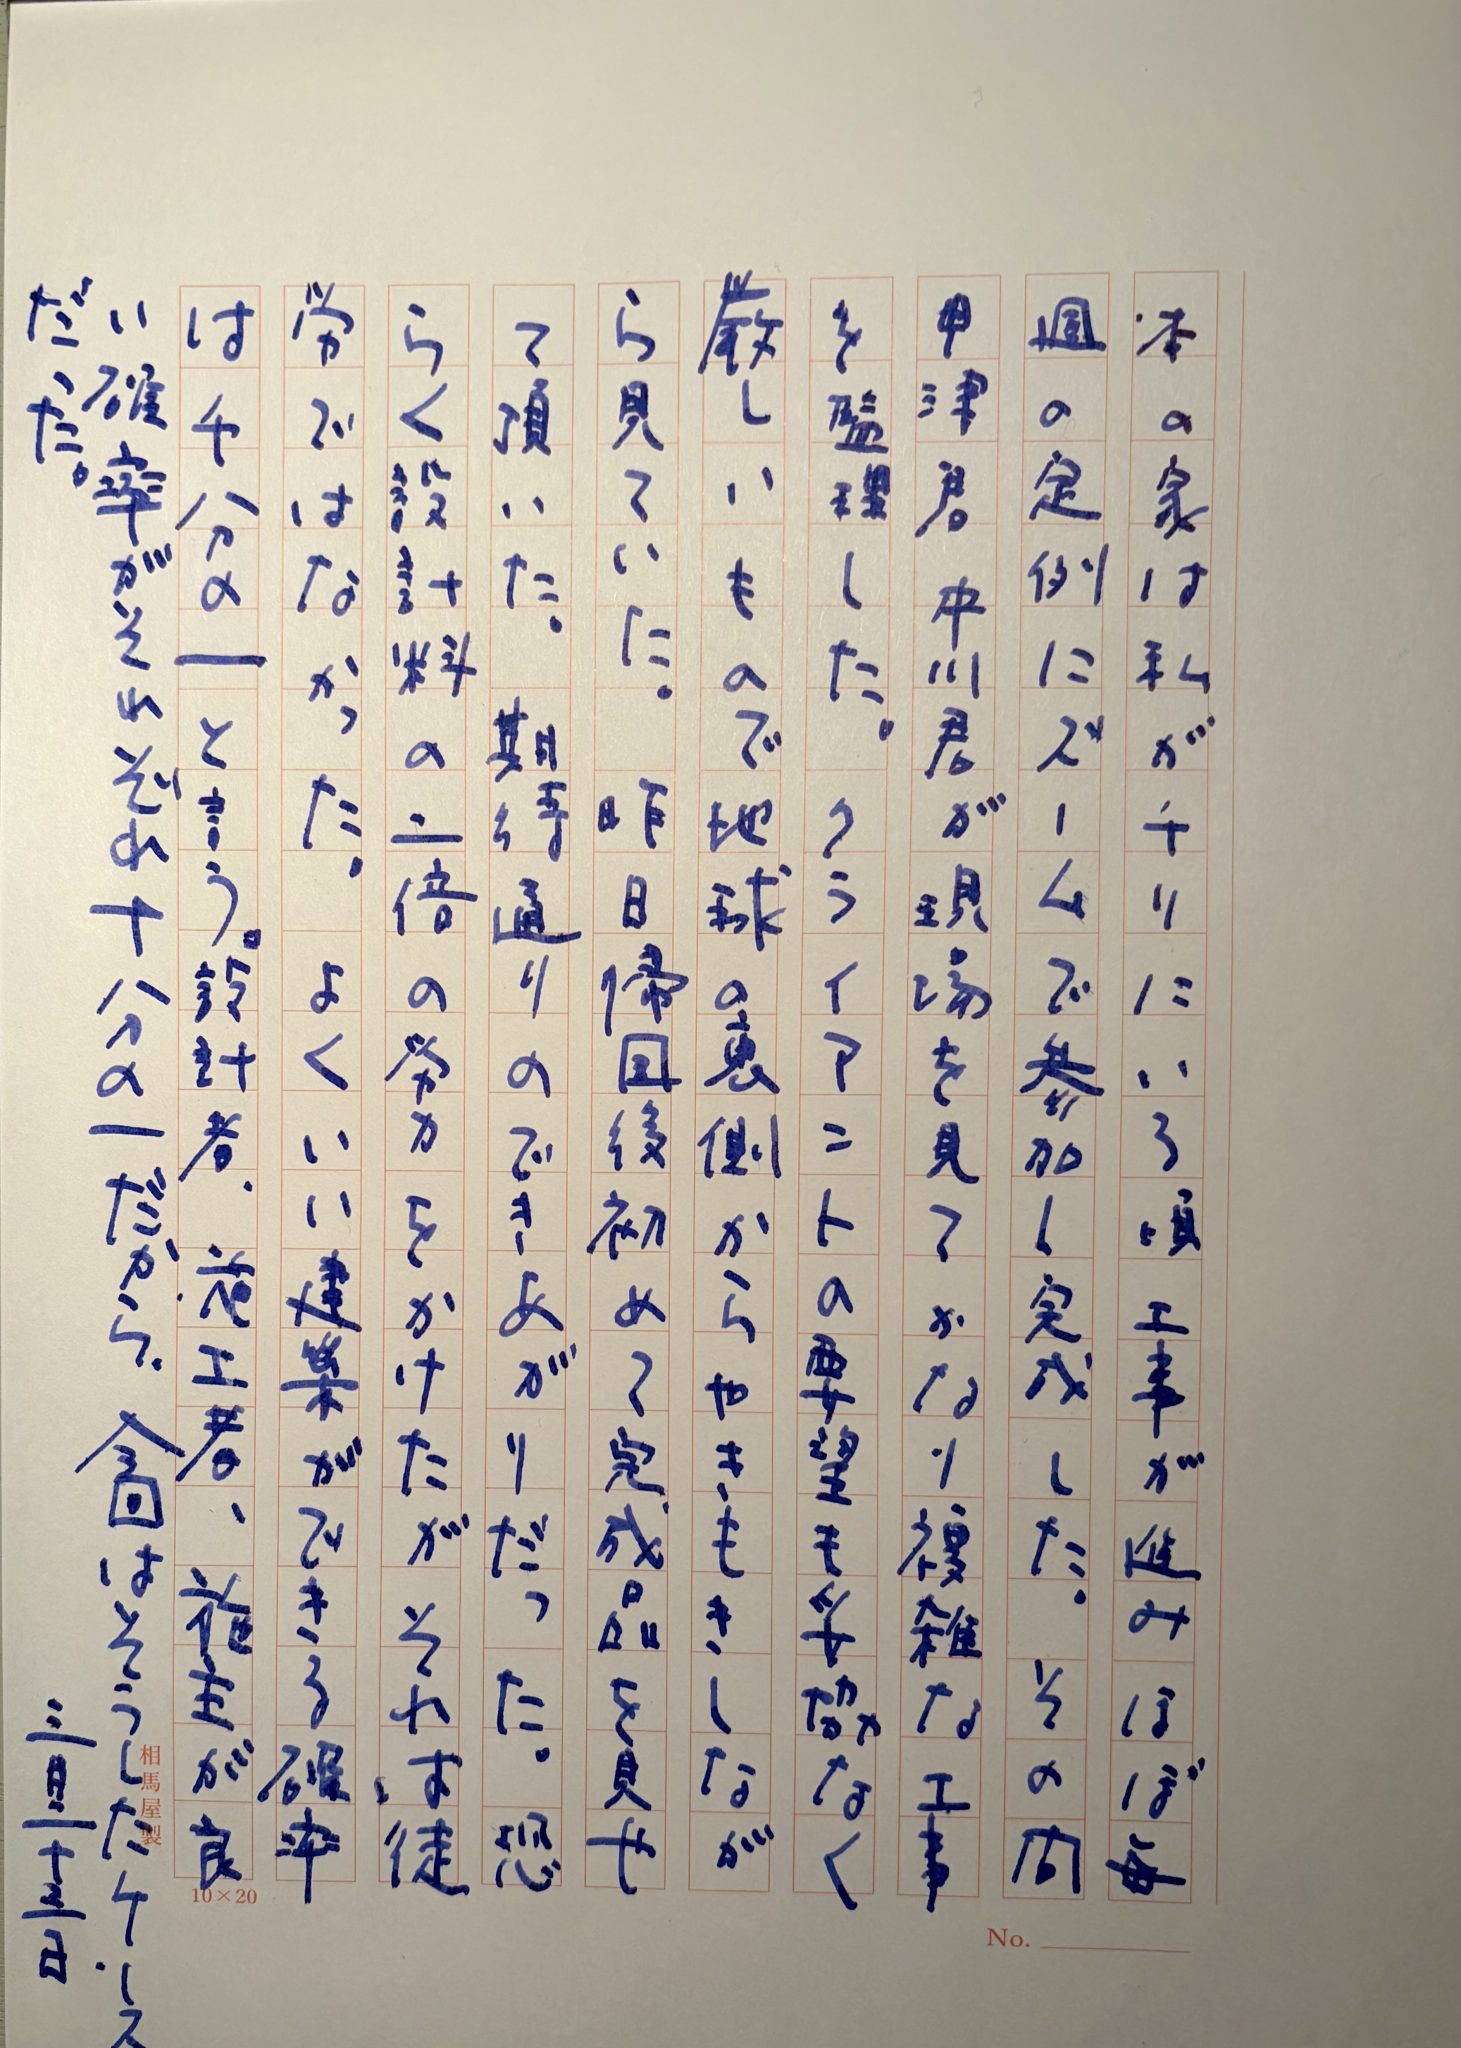 本の家は私がチリにいる頃工事が進みほぼ毎
週の定例にズームで参加し完成した。その間
甲津君中川君が現場を見てかなり複雑な工事
を監理した。クライアントの要望も妥協なく
厳しいもので地球の裏側からやきもきしなが
ら見ていた。昨日帰国後初めて完成品を見せ
て頂いた。期待通りのできよがりだった。恐
らく設計料の二倍の労力をかけたがそれは徒
労ではなかった。よくいい建築ができる確率
は千分の一と言う。設計者、施工者、施主が良
い確率がそれぞれ十分の一だから、今回はそうしたケース
だった。
三月二十三日
相馬屋製
10×20
No.